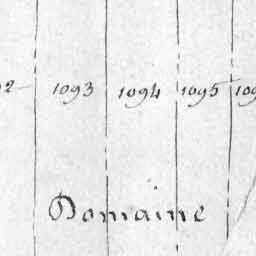 1093 1094 1095
Domaine